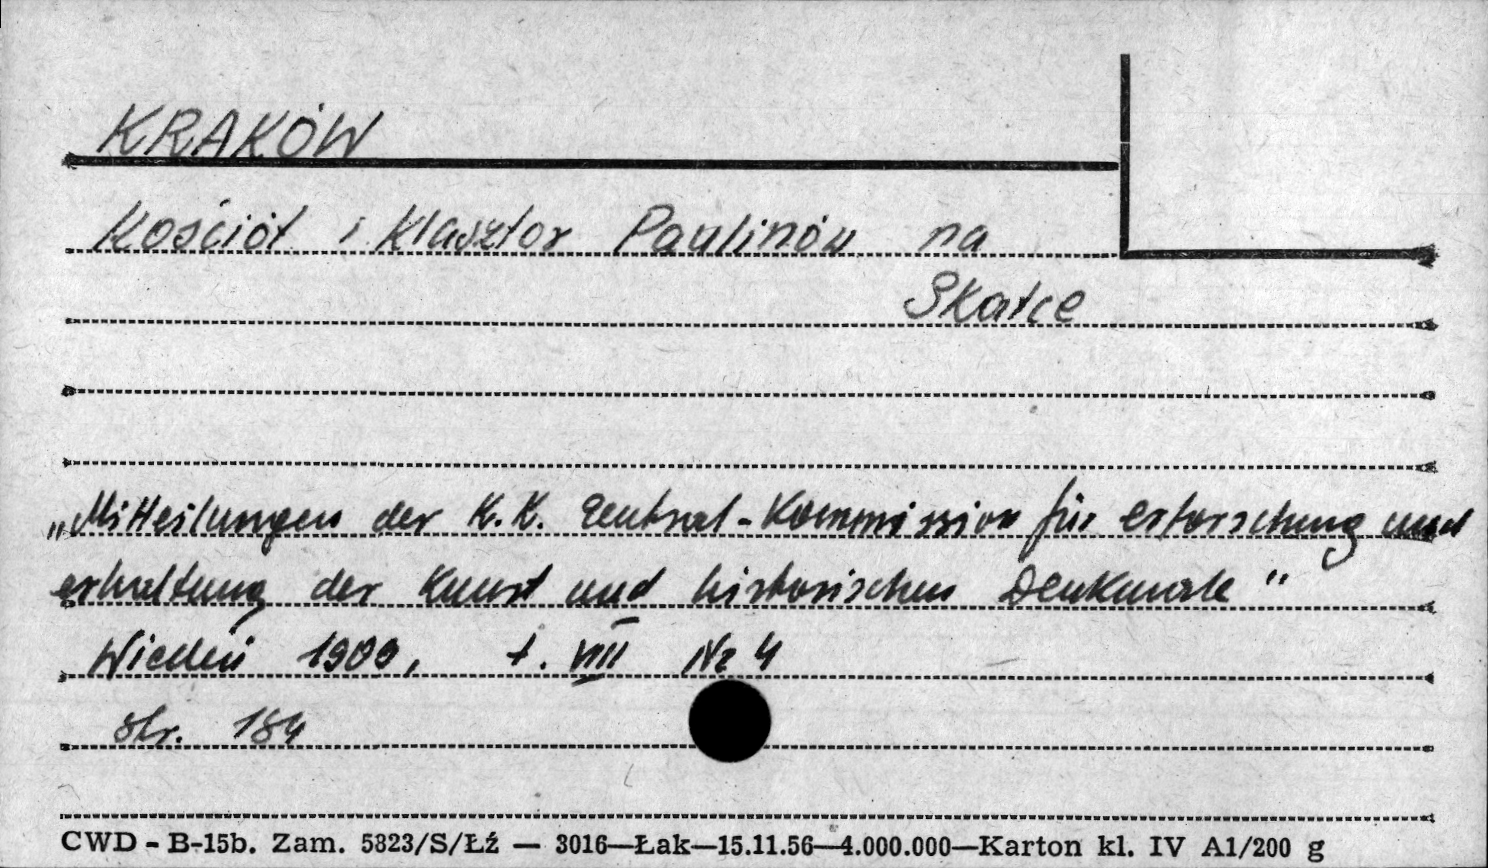 KRAKÓW
Kościół i Klasztor Paulinów na
Skałce
„Mitteilungen der K.K. Zentral-Kommission für erforschung und
erhaltung der Kunst und historischen Denkmale"
Wiedeń 1909, t. VIII Nr 4
str. 184
CWD - B-15b. Zam. 5823/S/Łź — 3016—Łak—15.11.56—4.000.000—Karton kl. IV A1/200 g